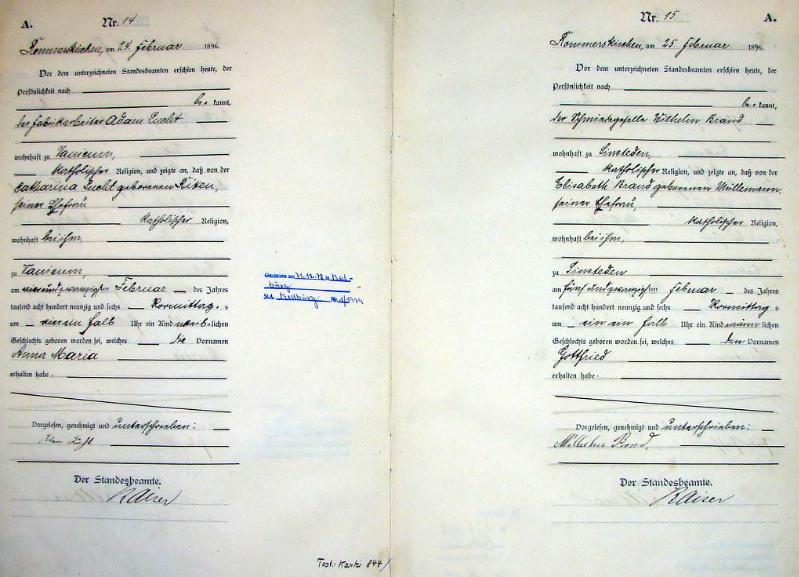 A.
Nr. 14
Rommerskirchen, am 24. Februar 1896
Vor dem unterzeichneten Standesbeamten erschien heute, der
Persönlichkeit nach
be= kannt,
der Fabrikarbeiter Adam Lucht
wohnhaft zu Vanicum,
katholischer Religion, und zeigte an, daß von der
Catharina Lucht geborenen
seiner Ehefrau
katholischer Religion,
wohnhaft bei ihm,
zu Vanicum,
am vierundzwanzigsten Februar des Jahres
tausend acht hundert neunzig und sechs Vormittags
um ein ein halb Uhr ein Kind weiblichen
Geschlechts geboren worden sei, welches die Vornamen
Anna Maria
erhalten habe.
Vorgelesen, genehmigt und unterschrieben:
Adam
Der Standesbeamte.
Kaiser
Gestorben am
burg
St.A. Bedburg Nr.
Test.-Karte 847/
Nr. 15
A.
Rommerskirchen, am 25. Februar 1896
Vor dem unterzeichneten Standesbeamten erschien heute, der
Persönlichkeit nach
be= kannt,
der Schmiedegeselle Wilhelm Brand
wohnhaft zu Sinsteden,
katholischer Religion, und zeigte an, daß von der
Elisabeth Brand geborenen Müllemann,
seiner Ehefrau,
katholischer Religion,
wohnhaft bei ihm,
zu Sinsteden
am fünfundzwanzigsten Februar des Jahres
tausend acht hundert neunzig und sechs Vormittags
um ein ein halb Uhr ein Kind männlichen
Geschlechts geboren worden sei, welches den Vornamen
Gottfried
erhalten habe.
Vorgelesen, genehmigt und unterschrieben:
Wilhelm Brand.
Der Standesbeamte.
Kaiser